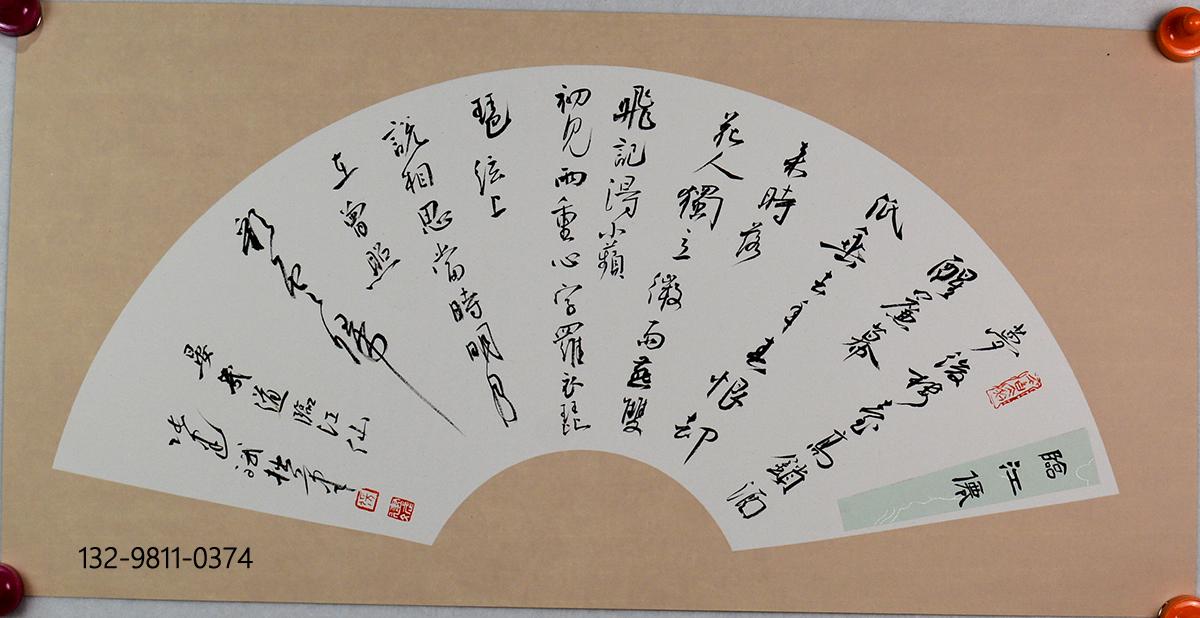 臨江僊
夢後樓臺高鎖酒
醒簾幕
低垂去年春恨却
來時落
花人獨立微雨燕雙
飛記得小蘋
初見兩重心字羅衣琵
琶絃上
說相思當時明月
在曾照
彩雲歸
晏幾道臨江仙
試拙筆
132-9811-0374